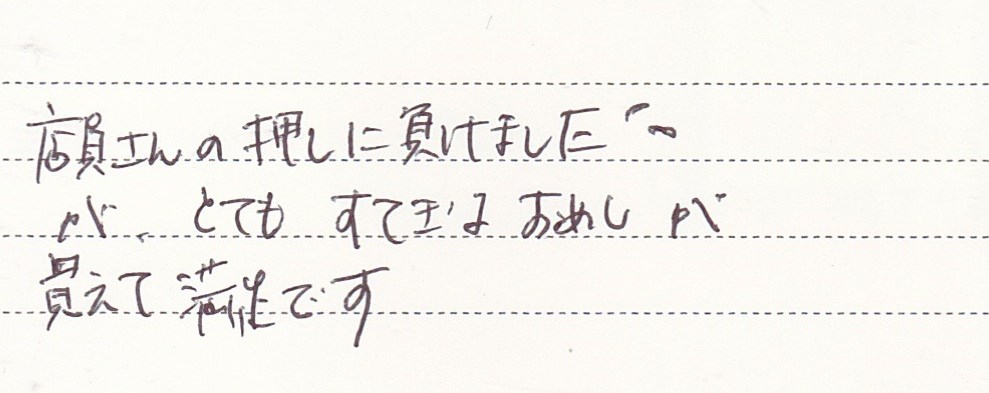 店員さんの押しに負けました〜
が、とてもすてきなおめしが
買えて満足です